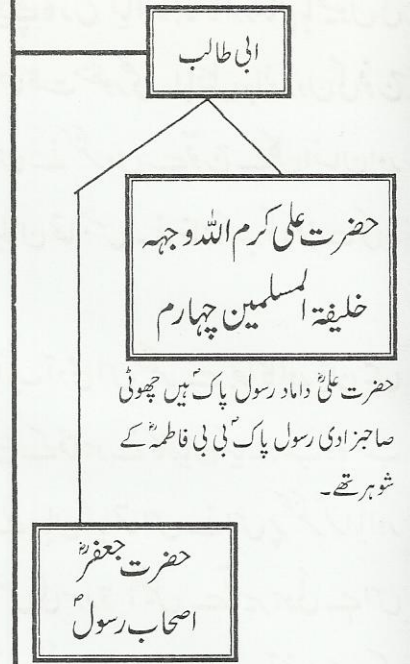 ابی طالب
حضرت علی کرم اللہ وجہہ
خلیفۃ المسلمین چہارم
حضرت علیؓ داماد رسول پاکؐ ہیں چھوٹی
صاحبزادی رسول پاکؐ بی بی فاطمہؓ کے
شوہر تھے۔
حضرت جعفرؓ
اصحاب رسولؐ